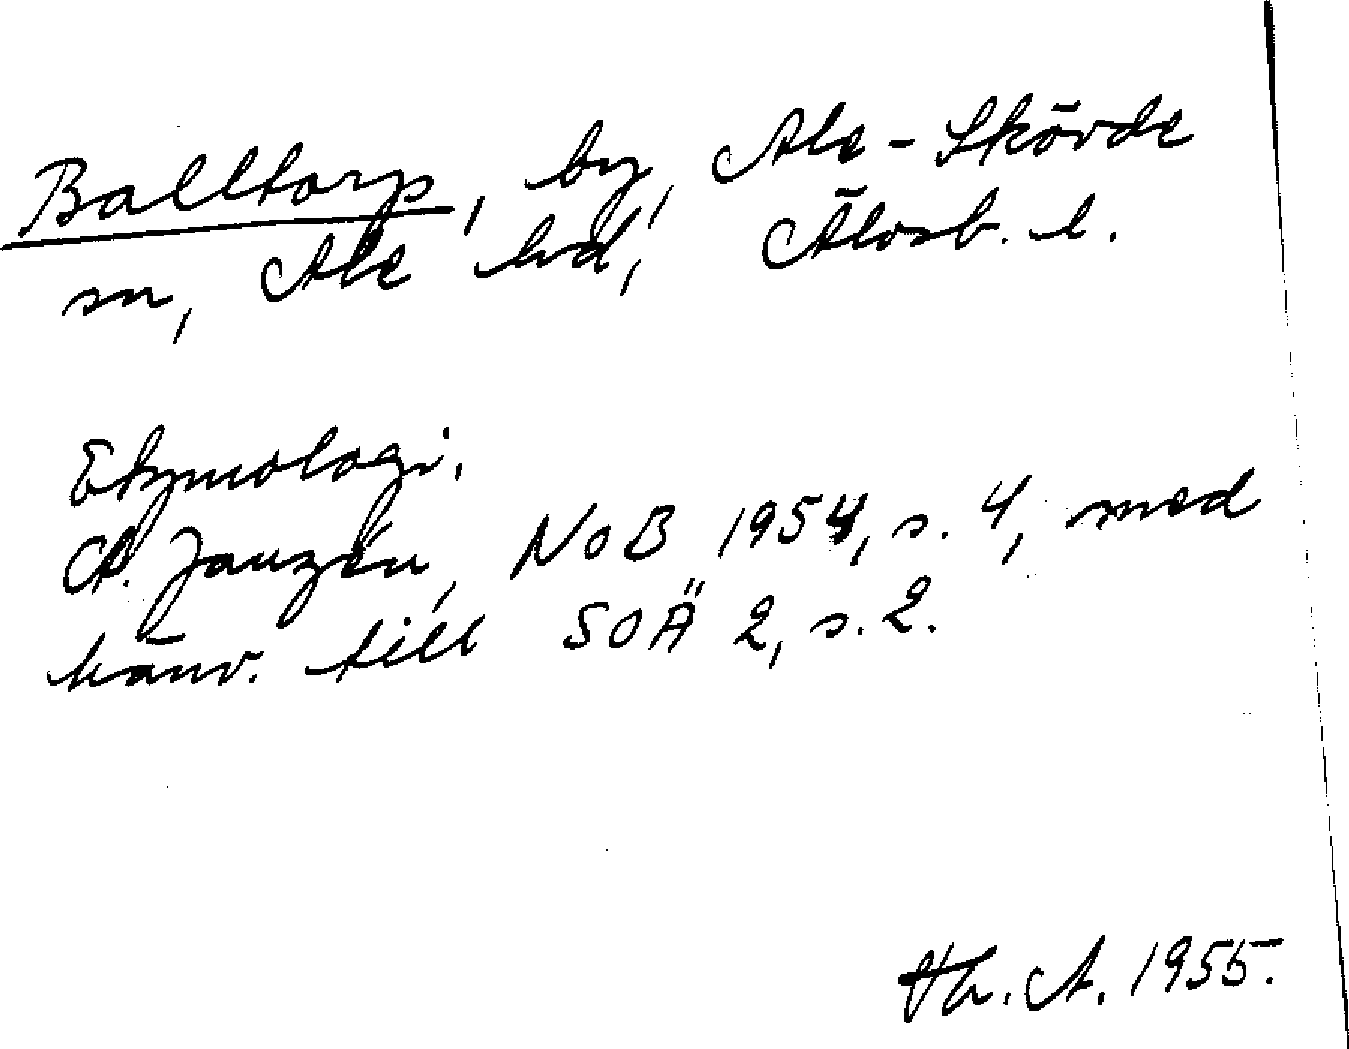 Balltorp, by, Ale-Skövde
sn, Ale hd, Älvsb. l.
Etymologi.
A. Janzén, NoB 1954, s. 4, med
hänv. till SOÄ 2, s. 2.
Th. A. 1955.